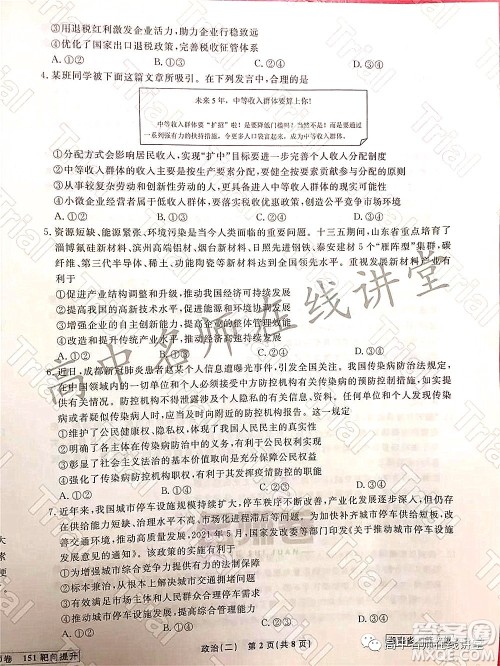 ③用退税红利激发企业活力，助力企业行稳致远
④优化了国家出口退税政策，完善税收征管体系
A.①② B.①③ C.②④ D.③④
4.某班同学被下面这篇文章所吸引。在下列发言中，合理的是
未来5年，中等收入群体要算上你！
中等收入群体要“扩招”啦！是要降低门槛吗？当然不是！而是要通过一系列强有力的扶持措施，令更多人口袋富起来，成为中等收入群体。
①分配方式会影响居民收入，实现“扩中”目标要进一步完善个人收入分配制度
②中等收入群体的收入主要是按生产要素分配，要健全按要素贡献参与分配的机制
③从事较复杂劳动和创新性劳动者，更具备进入中等收入群体的条件
④小微企业经营者是扩中的主体，创造公平竞争市场环境
A.①② B.①③ C.②④ D.③④
5.资源短缺、能源紧张、环境污染是当今人类面临的重要问题。十三五期间，山东省重点培育了
淄博氟硅新材料、滨州高端铝材、烟台新材料、日照先进钢铁、泰安建材5个“雁阵型”集群，碳
纤维、第三代半导体、稀土、功能陶瓷等新材料达到全国最大规模。重视发展新材料产业有
利于
①促进产业结构调整和升级，推动我国经济可持续发展
②提高我国的高新技术水平，促进能源和环境协调发展
③增强企业的自主创新能力，提高企业的整体管理效能
④改造和提升传统产业，推动产业技术水平的不断提高
A.①② B.①④ C.②③ D.③④
6.近日，成都新冠肺炎患者赵某个人信息遭曝光事件，引发全国关注。我国传染病防治法规定，
在中国领域内的一切单位和个人必须接受中方防控机构有关传染病的预防控制措施，如实提
供有关情况。防控机构不得泄露涉及个人隐私的有关信息、资料。任何人发现传染病病
或者疑似传染病人时，应当及时向附近的防控机构报告。这一规定
①维护了公民健康权、公民人身权和公共卫生权的真实性
②有利于协调各方主体在传染病防治方面的权利与义务
③彰显了社会主义法治的基本价值取向是实现公民自由
④强化传染病防控机构职权，有利于打击侵犯个人隐私行为
A.①② B.①③ C.②④ D.③④
7.近年来，我国城市停车设施规模持续扩大，停车秩序不断改善，产业化发展逐步深入，但仍存在
供给能力短缺、市场化进程滞后等问题。为加快补齐城市停车供给短板，改
善交通环境，推动高质量发展，2021年5月，国家发改委等部门印发《关于推动城市停车设施
发展意见的通知》。该政策的实施有利于
①增强城市的综合竞争力，提供有力的法治保障
②标本兼治，从根本上解决城市交通拥堵问题
③满足人民群众对美好生活的需要
④发挥市场在资源配置中的决定性作用
A.①② B.①③ C.②④ D.③④
政治(二) 第2页(共8页)
151 靶向提升
高中名师在线讲堂
Trial